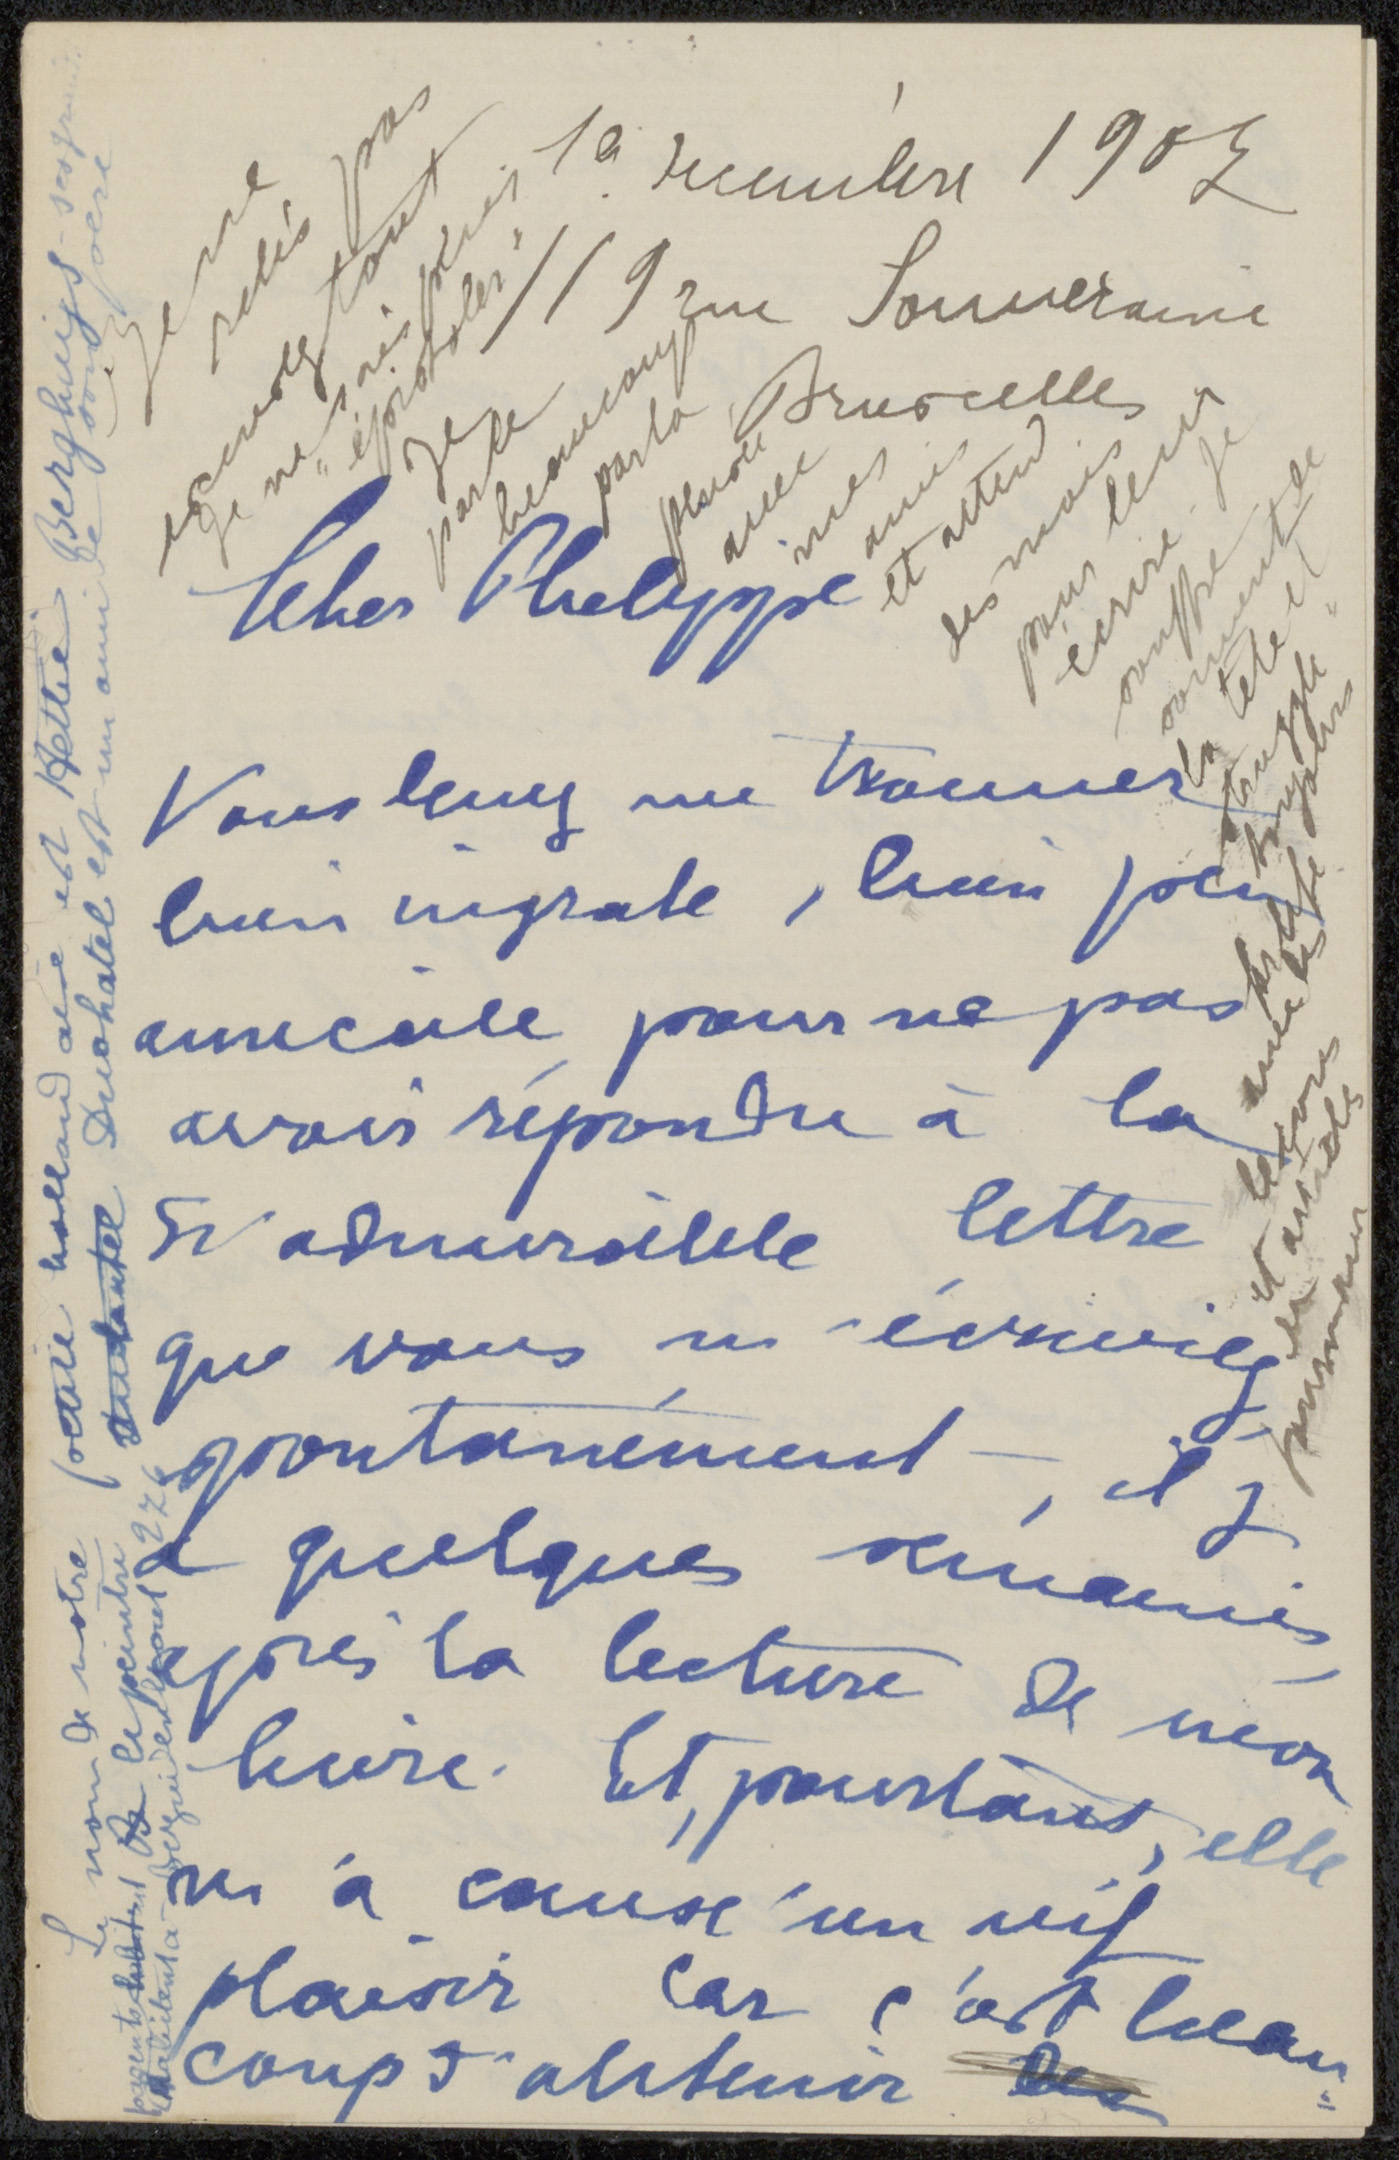 1er décembre 1902
119 rue Souveraine
Bruxelles
Je ne
relis pas
excusez tout
Je ne suis plus
"épistolier"
Je
parle
beaucoup
par la
pensée
avec
mes
amis
et attend
des mois
pour leur
écrire. Je
souffre
souvent de
la tête et
"struggle"
struggle
et les
et articles
journaux
Cher Philippe
Vous devez me trouver
bien ingrate, bien peu
amicale pour ne pas
avoir répondu à la
si admirable lettre
que vous m'écriviez
spontanément, il y
a quelques semaines,
après la lecture de mon
livre. Et, pourtant, elle
m'a causé un vif
plaisir car c'est beau=
coup d'obtenir des
Le nom de notre
poète hollandaise est Hettie Berghuijs - ses grand
le peintre Duchatel est un ami de son père